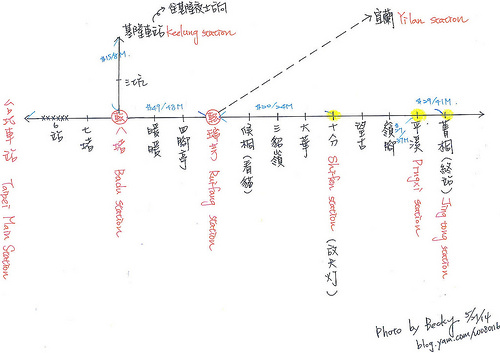 往基隆夜士方向
基隆車站 Keelung station
宜蘭 Yilan station
$15/8M.
三坑
$49/48M
$20/24M
$29/41M.
台北車站 Taipei Main Station
6站
七堵
八堵 Badu station
暖暖
四腳亭
瑞芳 Ruifang station
侯桐(看貓)
三貂嶺
大華
十分 Shifen station (放天灯)
望古
嶺腳
平溪 Pingxi station
菁桐(終站) Jing tong station
Photo by Becky 5/1/14
blog.yam.com/woo8016